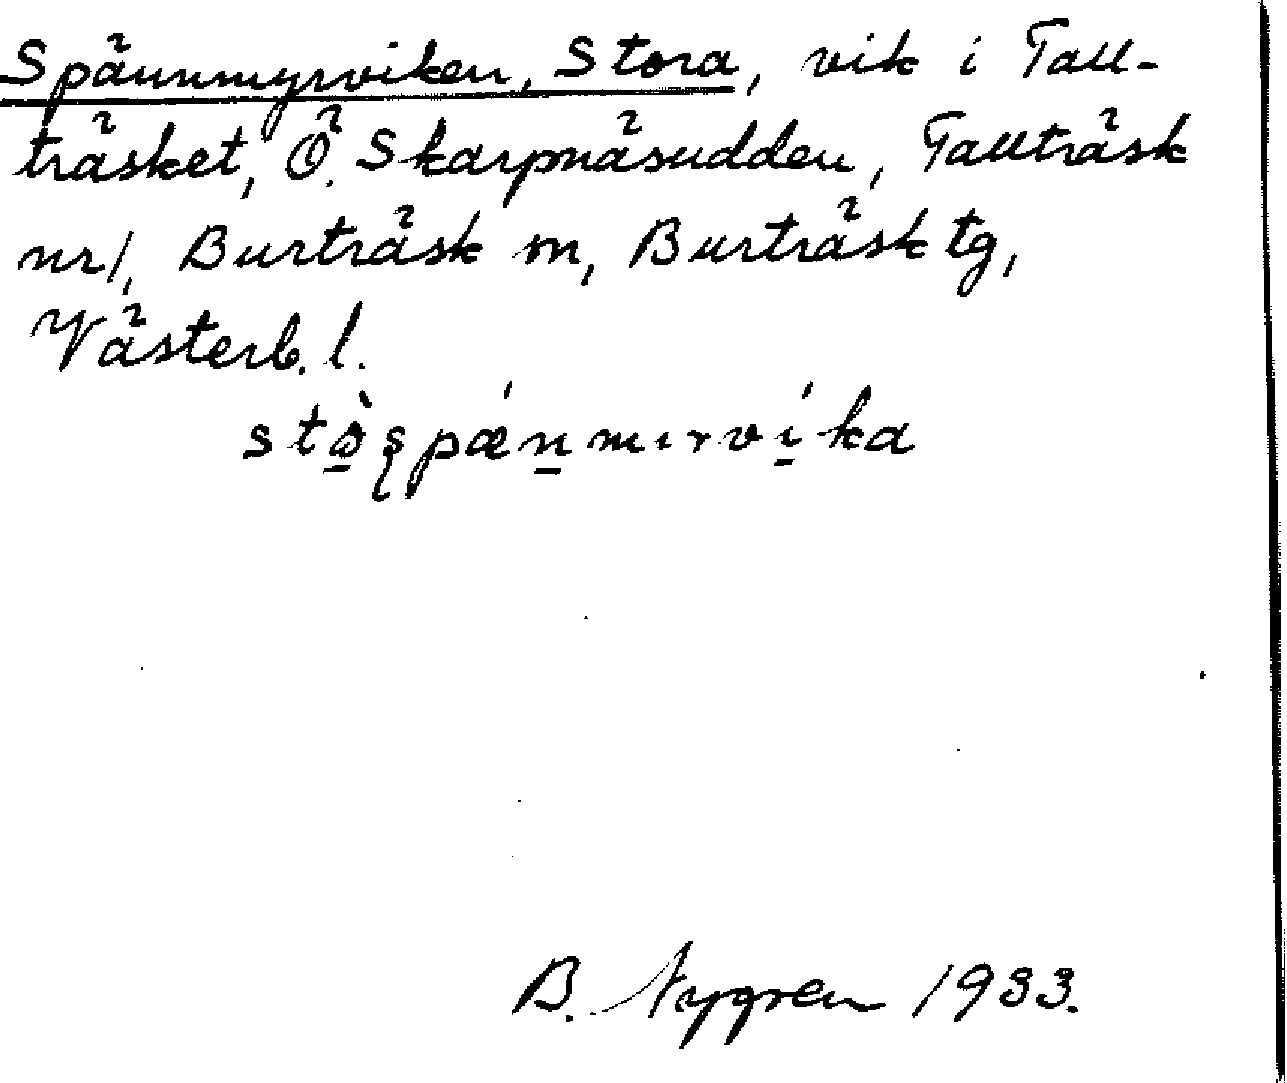 Spännmyrviken, Stora, vik i Tall-
träsket, Ö. Skarpnäsudden, Tallträsk
nr 1, Burträsk sn, Burträsk tg,
Västerb. l.
stò̠ʂpǽn̠mɪrví̠ka
B. Nygren 1933.